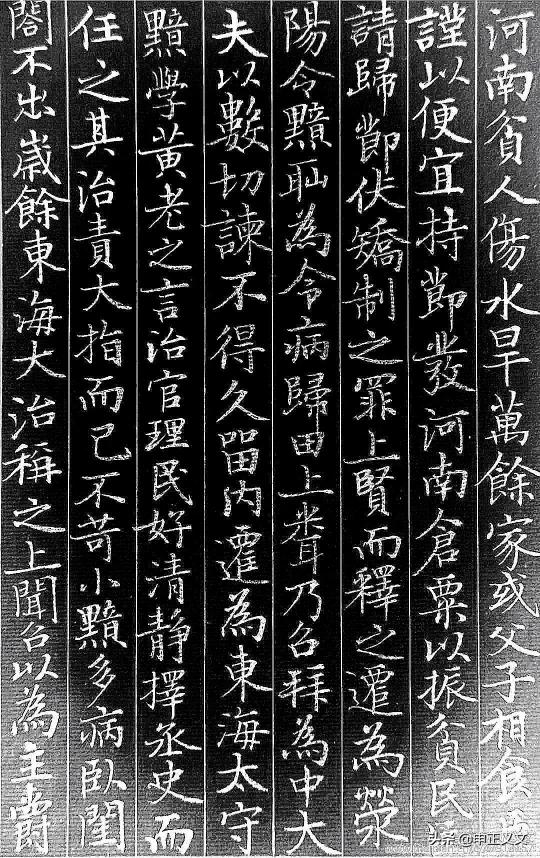 河南貧人傷水旱萬餘家或父子相食
謹以便宜持節發河南倉粟以振貧民
請歸節伏矯制之罪上賢而釋之遷為滎
陽令黯耻為令病歸田上聞乃召拜為中大
夫以數切諫不得久留內遷為東海太守
黯學黃老之言治官理民好清靜擇丞史而
任之其治責大指而已不苛小黯多病臥閨
閤不出歲餘東海大治稱之上聞召以為主爵
头条 @申正义文